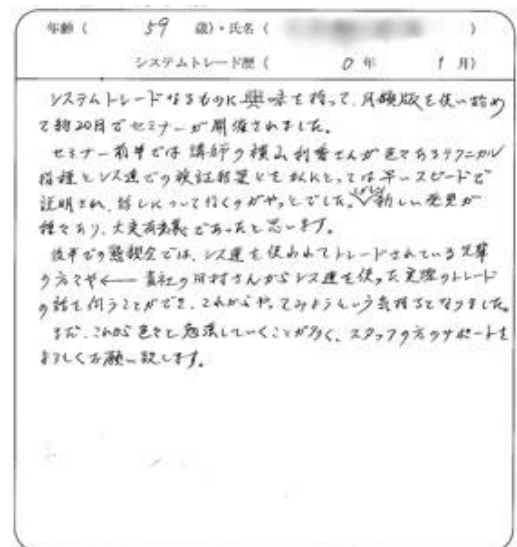 年齢( 59 歳)・氏名( )
システムトレード歴( 0 年 1 月)
システムトレードなるものに興味を持って、月額版を使い始め
て約20日でセミナーが開催されました。
セミナー前半では講師の横山利香さんが色々あるテクニカル
指標とシス達での検証結果とを私にとっては早いスピードで
説明され、話しについて行くのがやっとでした。しかし新しい発見が
種々あり、大変有意義であったと思います。
後半での懇親会では、シス達を使われてトレードされている先輩
の方々や← 貴社の田村さんからシス達を使った実際のトレード
の話を伺うことができ、これからやってみようという気持ちとなりました。
まだ、これから色々と勉強していくことが多く、スタッフの方のサポートを
よろしくお願い致します。